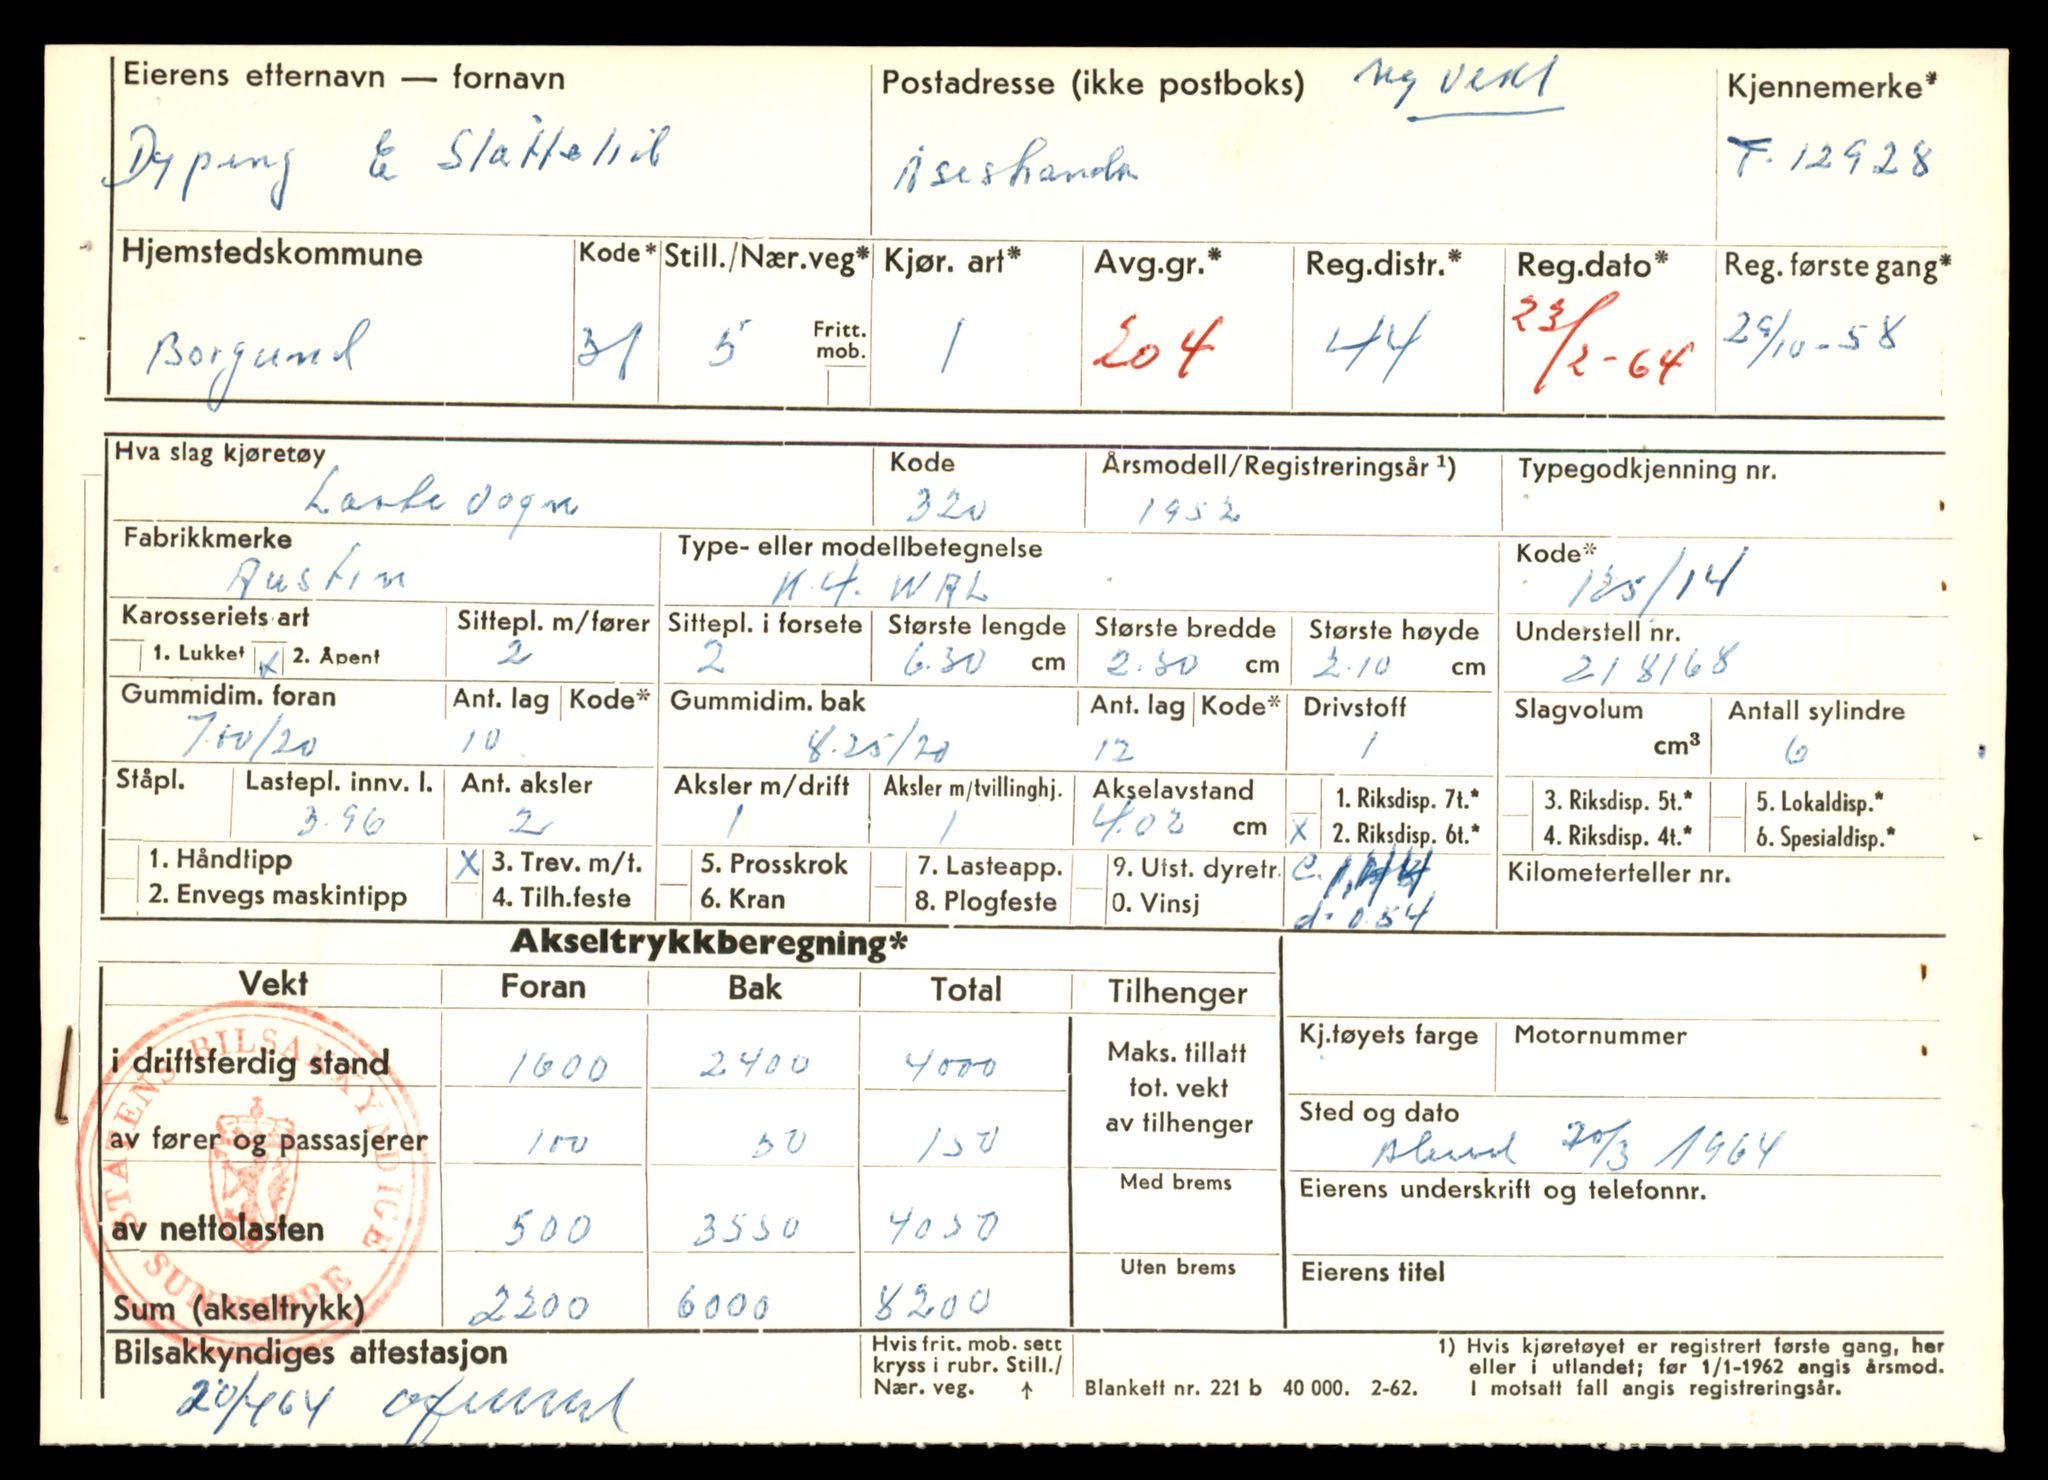 Eierens etternavn — fornavn
Postadresse (ikke postboks) Ny vekt
Kjennemerke*
Dypeng & Slåttelid
Åsestranda
T-12928
Hjemstedskommune Kode* Still./Nær.veg* Kjør. art* Avg.gr.* Reg.distr.* Reg.dato* Reg. første gang*
Borgund 31 5 Fritt. mob. 1 204 44 23/2-64 29/10-58
Hva slag kjøretøy Kode Årsmodell/Registreringsår ¹) Typegodkjenning nr.
Lastevogn 320 1952
Fabrikkmerke Type- eller modellbetegnelse Kode*
Austin K.4. WRL 125/14
Karosseriets art Sittepl. m/fører Sittepl. i forsete Største lengde Største bredde Største høyde Understell nr.
1. Lukket X 2. Åpent 2 2 6.30 cm 2.30 cm 2.10 cm 218168
Gummidim. foran Ant. lag Kode* Gummidim. bak Ant. lag Kode* Drivstoff Slagvolum Antall sylindre
7.00/20 10 8.25/20 12 1 cm³ 6
Ståpl. Lastepl. innv. l. Ant. aksler Aksler m/drift Aksler m/tvillinghj. Akselavstand 1. Riksdisp. 7t.* 3. Riksdisp. 5t.* 5. Lokaldisp.*
3.96 2 1 1 4.02 cm X 2. Riksdisp. 6t.* 4. Riksdisp. 4t.* 6. Spesialdisp.*
1. Håndtipp X 3. Trev. m/t. 5. Prosskrok 7. Lasteapp. 9. Utst. dyretr. c. Kilometerteller nr.
2. Envegs maskintipp 4. Tilh.feste 6. Kran 8. Plogfeste 0. Vinsj d. 0.54
Akseltrykkberegning*
Vekt Foran Bak Total Tilhenger
i driftsferdig stand 1600 2400 4000
Maks. tillatt
tot. vekt
av tilhenger
Kj.tøyets farge Motornummer
av fører og passasjerer 100 50 150
Sted og dato
Ålesund 20/3 1964
Med brems
Eierens underskrift og telefonnr.
av nettolasten 500 3550 4050
Uten brems
Eierens titel
Sum (akseltrykk) 2200 6000 8200
STATENS BILSAKKYNDIGE
SUNNMØRE
Bilsakkyndiges attestasjon
20/4 64
Hvis frit. mob. sett
kryss i rubr. Still./
Nær. veg. ↑
Blankett nr. 221 b 40 000. 2-62.
1) Hvis kjøretøyet er registrert første gang, her
eller i utlandet; før 1/1-1962 angis årsmod.
I motsatt fall angis registreringsår.